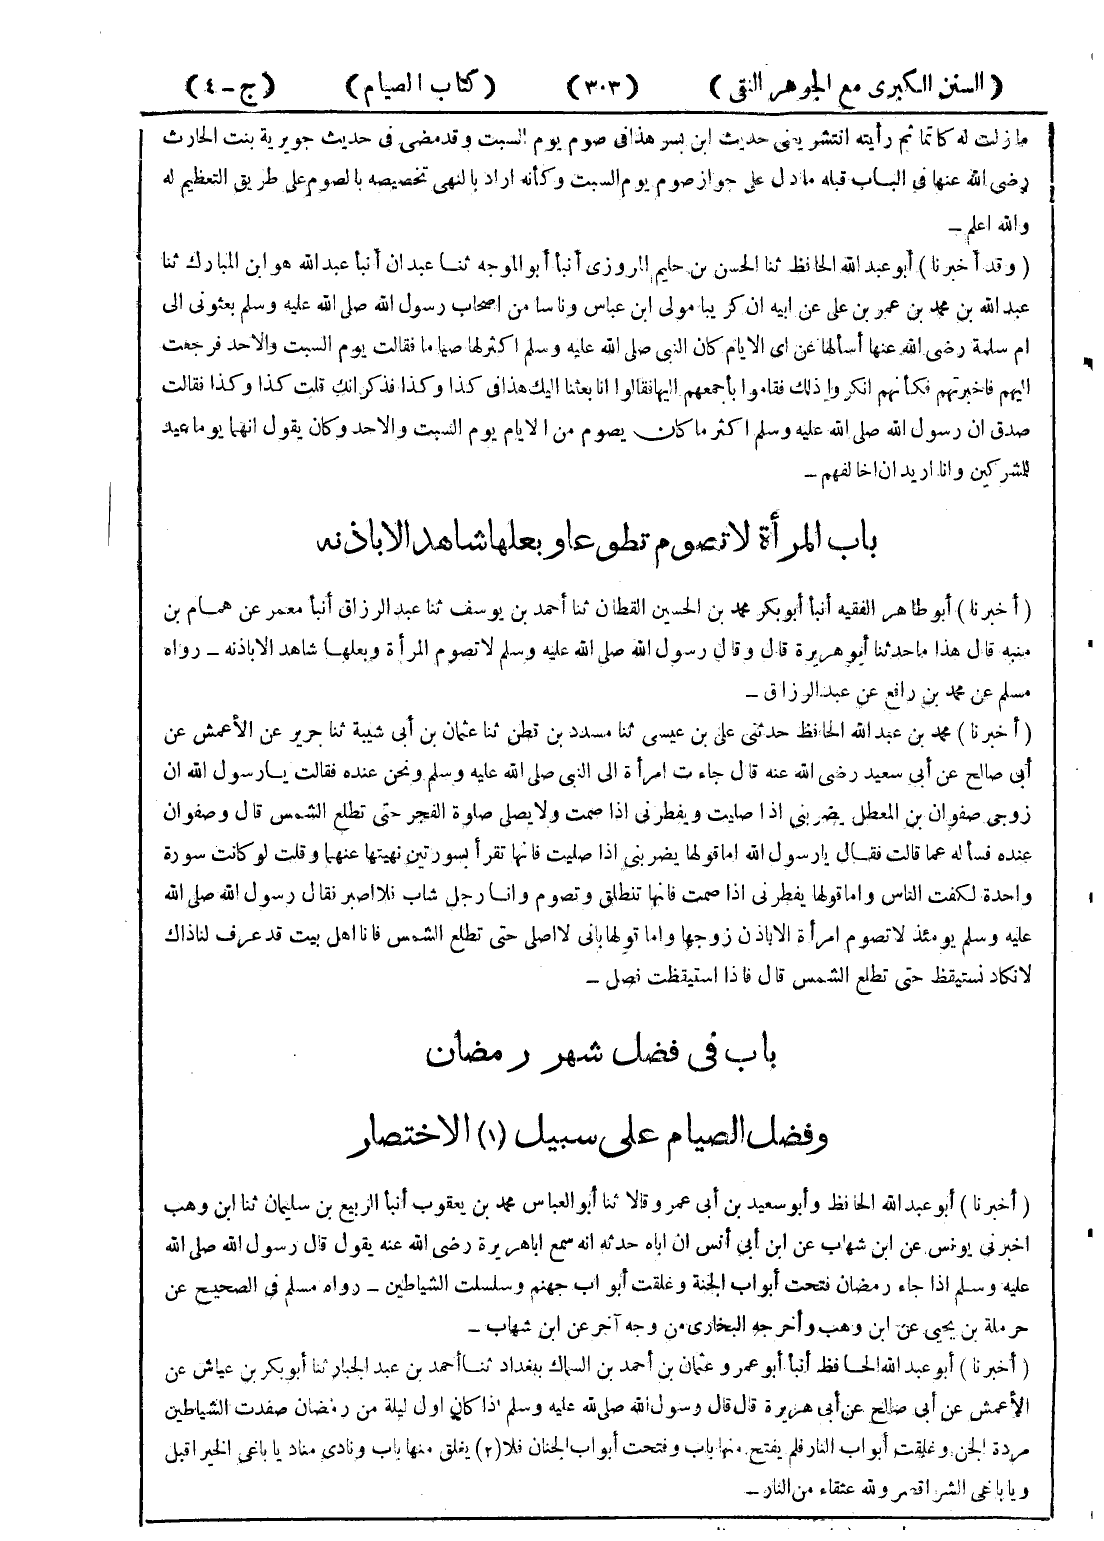 ( السنن الكبرى مع الجوهر النقى ) (٣٠٣) ( كتاب الصيام ) ( ج - ٤ )
ما زلت له كاتما ثم رأيته انتشر يعنى حديث ابن بسر هذا فى صوم يوم السبت و قد مضى فى حديث جويرية بنت الحارث
رضى الله عنها فى الباب قبله ما دل على جواز صوم يوم السبت وكأنه اراد بالنهى تخصيصه بالصوم على طريق التعظيم له
والله اعلم ـ
( وقد أخبرنا ) أبو عبد الله الحافظ ثنا الحسن بن حليم المروزى أنبأ أبو الموجه ثنا عبدان أنبأ عبد الله هو ابن المبارك ثنا
عبد الله بن محمد بن عمر بن على عن ابيه ان كريبا مولى ابن عباس وناسا من اصحاب رسول الله صلى الله عليه وسلم بعثونى الى
ام سلمة رضى الله عنها أسألها عن اى الايام كان النبى صلى الله عليه وسلم اكثر لها صياما فقالت يوم السبت والاحد فرجعت
اليهم فاخبرتهم فكأنهم انكروا ذلك فقاموا بأجمعهم اليها فقالوا انا بعثنا اليك هذا فى كذا وكذا فذكر انك قلت كذا وكذا فقالت
صدق ان رسول الله صلى الله عليه وسلم اكثر ما كان يصوم من الايام يوم السبت والاحد وكان يقول انهما يوما عيد
للمشركين وانا اريد ان اخالفهم ـ
باب المرأة لا تصوم تطوعا وبعلها شاهد الا باذنه
( أخبرنا ) أبو طاهر الفقيه أنبأ أبو بكر محمد بن الحسين القطان ثنا أحمد بن يوسف ثنا عبد الرزاق أنبأ معمر عن همام بن
منبه قال هذا ما حدثنا أبو هريرة قال وقال رسول الله صلى الله عليه وسلم لا تصوم المرأة وبعلها شاهد الا باذنه ـ رواه
مسلم عن محمد بن رافع عن عبد الرزاق ـ
( أخبرنا ) محمد بن عبد الله الحافظ حدثنى على بن عيسى ثنا مسدد بن قطن ثنا عثمان بن أبى شيبة ثنا جرير عن الأعمش عن
أبى صالح عن أبى سعيد رضى الله عنه قال جاءت امرأة الى النبى صلى الله عليه وسلم ونحن عنده فقالت يا رسول الله ان
زوجى صفوان بن المعطل يضربنى اذا صليت ويفطرنى اذا صمت ولا يصلى صلوة الفجر حتى تطلع الشمس قال وصفوان
عنده فسأله عما قالت فقال يا رسول الله اما قولها يضربنى اذا صليت فانها تقرأ بسورتين نهيتها عنهما وقلت لو كانت سورة
واحدة لكفت الناس واما قولها يفطرنى اذا صمت فانها تنطلق وتصوم وانا رجل شاب فلا اصبر فقال رسول الله صلى الله
عليه وسلم يومئذ لا تصوم امرأة الا باذن زوجها واما قولها بانى لا اصلى حتى تطلع الشمس فانا اهل بيت قد عرف لنا ذاك
لا نكاد نستيقظ حتى تطلع الشمس قال فاذا استيقظت فصل ـ
باب فى فضل شهر رمضان
وفضل الصيام على سبيل (١) الاختصار
( أخبرنا ) أبو عبد الله الحافظ وأبو سعيد بن أبى عمرو قالا ثنا أبو العباس محمد بن يعقوب أنبأ الربيع بن سليمان ثنا ابن وهب
اخبرنى يونس عن ابن شهاب عن ابن أبى أنس ان اباه حدثه انه سمع ابا هريرة رضى الله عنه يقول قال رسول الله صلى الله
عليه وسلم اذا جاء رمضان فتحت أبواب الجنة وغلقت أبواب جهنم وسلسلت الشياطين ـ رواه مسلم فى الصحيح عن
حرملة بن يحيى عن ابن وهب وأخرجه البخارى من وجه آخر عن ابن شهاب ـ
( أخبرنا ) أبو عبد الله الحافظ أنبأ أبو عمرو عثمان بن أحمد بن السماك ببغداد ثنا أحمد بن عبد الجبار ثنا أبو بكر بن عياش عن
الأعمش عن أبى صالح عن أبى هريرة قال قال رسول الله صلى الله عليه وسلم اذا كان اول ليلة من رمضان صفدت الشياطين
مردة الجن وغلقت أبواب النار فلم يفتح منها باب وفتحت أبواب الجنان فلا (٢) يغلق منها باب ونادى مناد يا باغى الخير اقبل
ويا باغى الشر اقصر ولله عتقاء من النار ـ